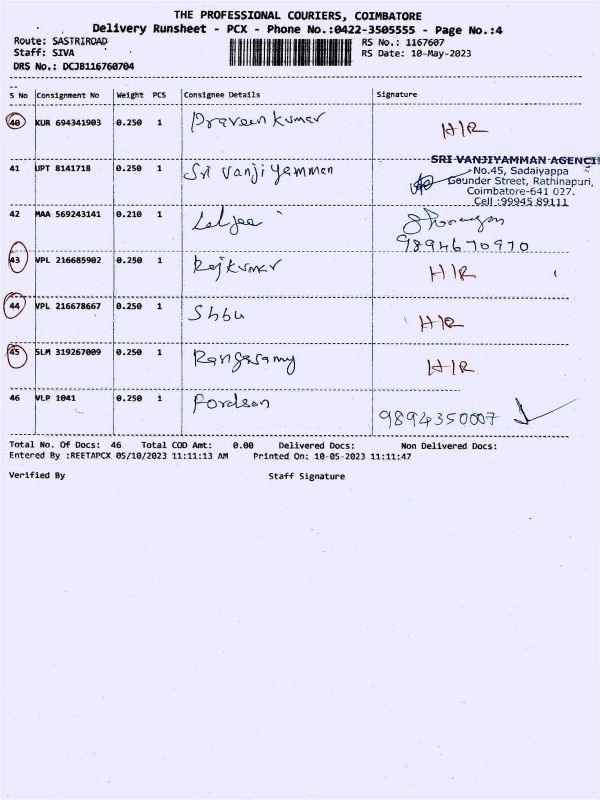 THE PROFESSIONAL COURIERS, COIMBATORE
Delivery Runsheet - PCX - Phone No.:0422-3505555 - Page No.:4
Route: SASTRIROAD RS No.: 1167607
Staff: SIVA RS Date: 10-May-2023
DRS No.: DCJB116760704
S No Consignment No Weight PCS Consignee Details Signature
40 KUR 694341903 0.250 1 Praveen kumar H/R
41 UPT 8141718 0.250 1 Sri vanjiyamman
SRI VANJIYAMMAN AGENCI
No.45, Sadaiyappa
Gounder Street, Rathinapuri,
Coimbatore-641 027.
Cell :99945 89111
42 MAA 569243141 0.210 1
9894670970
43 VPL 216685902 0.250 1 Rajkumar H/R
44 VPL 216678667 0.250 1 Shbu H/R
45 SLM 319267009 0.250 1 Rangasamy H/R
46 VLP 1041 0.250 1 Fordson 9894350007
Total No. Of Docs: 46 Total COD Amt: 0.00 Delivered Docs: Non Delivered Docs:
Entered By :REETAPCX 05/10/2023 11:11:13 AM Printed On: 10-05-2023 11:11:47
Verified By Staff Signature